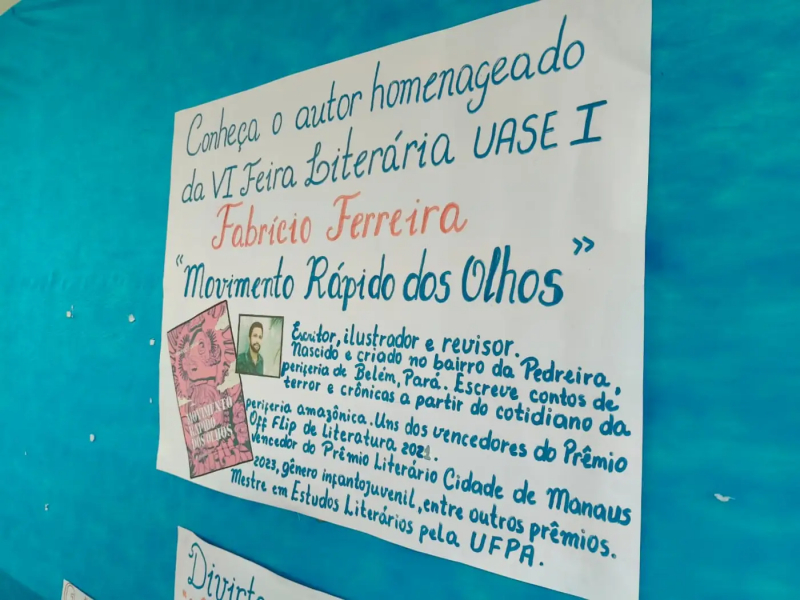 Conheça o autor homenageado
da VI Feira Literária UASE I
Fabrício Ferreira
“Movimento Rápido dos Olhos”
Escritor, ilustrador e revisor.
Nascido e criado no bairro da Pedreira,
periferia de Belém, Pará. Escreve contos de
terror e crônicas a partir do cotidiano da
periferia amazônica. Uns dos vencedores do Prêmio
Off Flip de Literatura 2021.
Vencedor do Prêmio Literário Cidade de Manaus
2023, gênero infantojuvenil, entre outros prêmios.
Mestre em Estudos Literários pela UFPA.
MOVIMENTO
RÁPIDO
DOS OLHOS